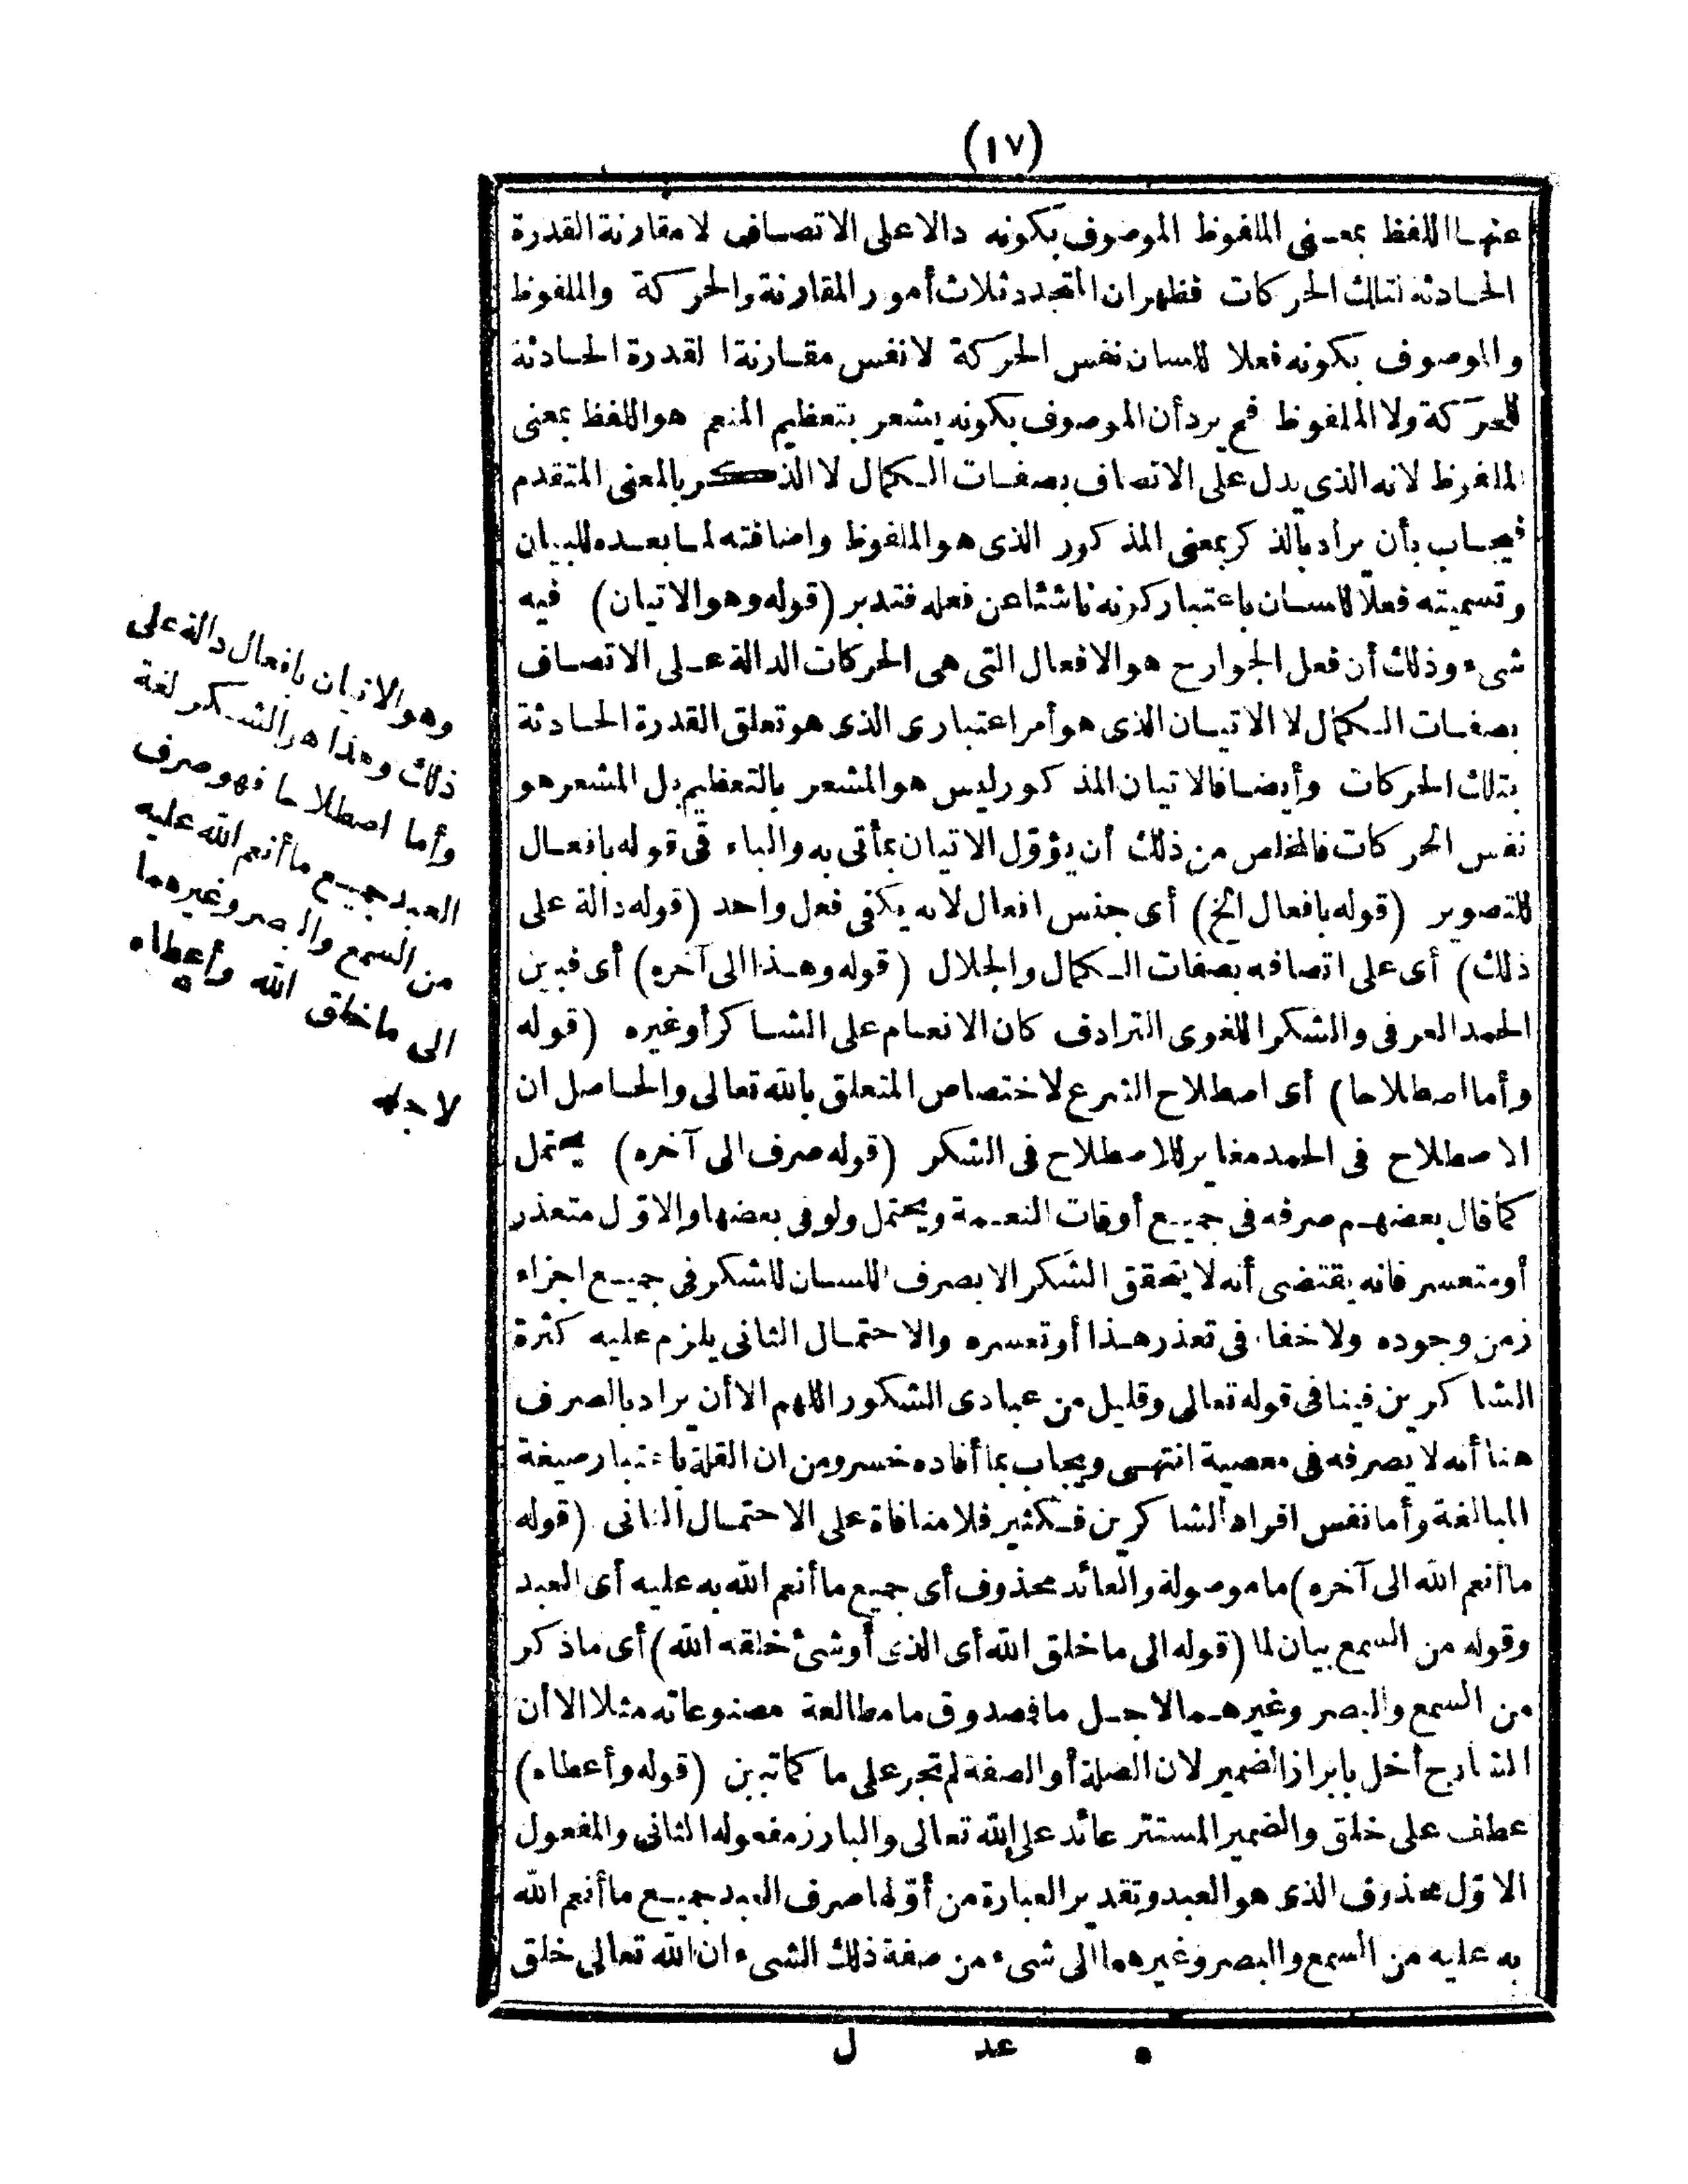 (١٧)
عنها اللفظ بمعنى الملفوظ الموصوف بكونه دالا على الاتصاف لا مقارنة القدرة
الحادثة لتلك الحركات فظهر ان المتجدد ثلاث أمور المقارنة والحركة والملفوظ
والموصوف بكونه فعلا للسان نفس الحركة لا نفس مقارنة القدرة الحادثة
للحركة ولا الملفوظ فح يرد أن الموصوف بكونه يشعر بتعظيم المنعم هو اللفظ بمعنى
الملفوظ لانه الذى يدل على الاتصاف بصفات الكمال لا الذكر بالمعنى المتقدم
فيجاب بأن يراد بالذكر بمعنى المذكور الذى هو الملفوظ واضافته لما بعده للبيان
وتسميته فعلا للسان باعتبار كونه ناشئا عن فعله فتدبر (قوله وهو الاتيان) فيه
شىء وذلك أن فعل الجوارح هو الافعال التى هى الحركات الدالة على الاتصاف
بصفات الكمال لا الاتيان الذى هو أمر اعتبارى الذى هو تعلق القدرة الحادثة
بتلك الحركات وأيضا فالاتيان المذكور ليس هو المشعر بالتعظيم بل المشعر هو
نفس الحركات فالمخلص من ذلك أن يؤوّل الاتيان بمأتى به والباء فى قوله بافعال
للتصوير (قوله بافعال الخ) أى جنس افعال لانه يكفى فعل واحد (قوله دالة على
ذلك) أى على اتصافه بصفات الكمال والجلال (قوله وهذا الى آخره) أى فبين
الحمد العرفى والشكر اللغوى الترادف كان الانعام على الشاكر أو غيره (قوله
وأما اصطلاحا) أى اصطلاح الشرع لاختصاص المتعلق بالله تعالى والحاصل ان
الاصطلاح فى الحمد مغاير للاصطلاح فى الشكر (قوله صرف الى آخره) يحتمل
كما قال بعضهم صرفه فى جميع أوقات النعمة ويحتمل ولو فى بعضها والاوّل متعذر
أو متعسر فانه يقتضى أنه لا يتحقق الشكر الا بصرف اللسان للشكر فى جميع اجزاء
زمن وجوده ولا خفاء فى تعذر هذا أو تعسره والاحتمال الثانى يلزم عليه كثرة
الشاكرين فينافى قوله تعالى وقليل من عبادى الشكور اللهم الا أن يراد بالصرف
هنا أنه لا يصرفه فى معصية انتهى ويجاب بما أفاده خسرو من ان القلة باعتبار صيغة
المبالغة وأما نفس افراد الشاكرين فكثير فلا منافاة على الاحتمال الثانى (قوله
ما أنعم الله الى آخره) ما موصولة والعائد محذوف أى جميع ما أنعم الله به عليه أى العبد
وقوله من السمع بيان لما (قوله الى ما خلق الله أى الذى أو شىء خلقه الله) أى ما ذكر
من السمع والبصر وغيرهما لاجل ما فصدوق ما مطالعة مصنوعاته مثلا الا أن
الشارح أخل بابراز الضمير لان الصلة أو الصفة لم تجر على ما كما تبين (قوله وأعطاه)
عطف على خلق والضمير المستتر عائد على الله تعالى والبارز مفعوله الثانى والمفعول
الاوّل محذوف الذى هو العبد وتقدير العبارة من أوّلها صرف العبد جميع ما أنعم الله
به عليه من السمع والبصر وغيرهما الى شىء من صفة ذلك الشىء ان الله تعالى خلق
وهو الاتيان بافعال دالة على
ذلك وهذا هو الشكر لغة
وأما اصطلاحا فهو صرف
العبد جميع ما أنعم الله عليه
من السمع والبصر وغيرهما
الى ما خلق الله وأعطاه
لاجله
٥ عد ل